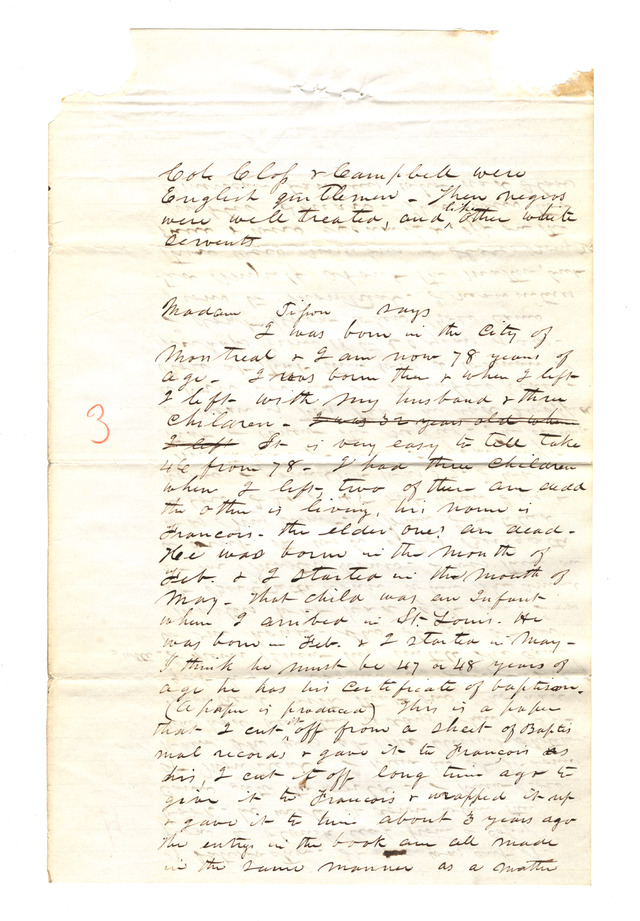 Cole Closs & Campbell were
English gentlemen - Their negros
were well treated, and like other white
servents
Madam Tison says
I was born in the City of
Montreal & I am now 78 years of
age - I was born ther & when I left
I left with my husband & three
children - I was 32 years old when
I left It is very easy to tell take
46 from 78 - I had three children
when I left, two of them are dead
the other is living, his name is
Francois - the elder ones are dead -
He was born in the month of
Feb. & I started in the month of
May - That child was an Infant
when I arrived in St. Louis. He
was born in Feb. & I started in May -
I think he must be 47 or 48 years of
age he has his Certificate of baptism.
(A paper is produced) This is a paper
that I cut it off from a sheet of Baptis
mal records & gave it to Francois as
his, I cut it off long time ago to
give it to Francois & wrapped it up
& gave it to him about 3 years ago
the entrys in the book are all made
in the same manner as a matter
3